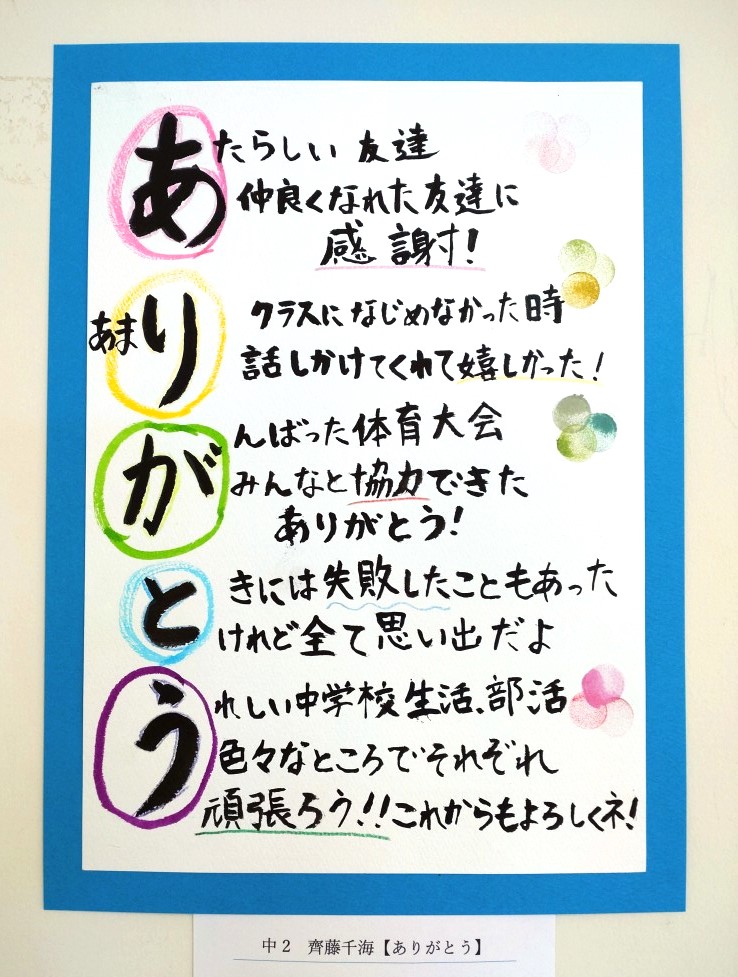 あたらしい 友達
仲良くなれた友達に
感謝!
あまり クラスになじめなかった時
話しかけてくれて嬉しかった!
がんばった体育大会
みんなと協力できた
ありがとう!
ときには失敗したこともあった
けれど全て思い出だよ
うれしい中学校生活、部活
色々なところでそれぞれ
頑張ろう!!これからもよろしくネ!
中2 齊藤千海【ありがとう】